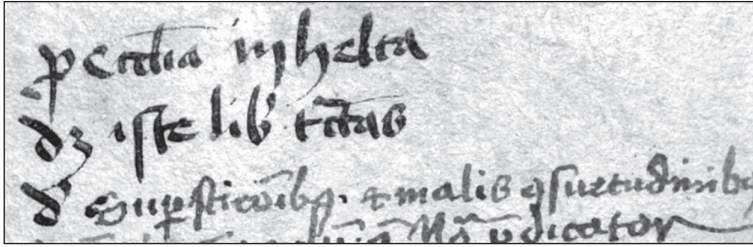 ꝓ eccl̄ia in helta
dꝫ iste lib' tc̄tas
d' Suꝑsticōibꝫ. ⁊ malis ꝯsuetudinibꝫ
p̄dicator